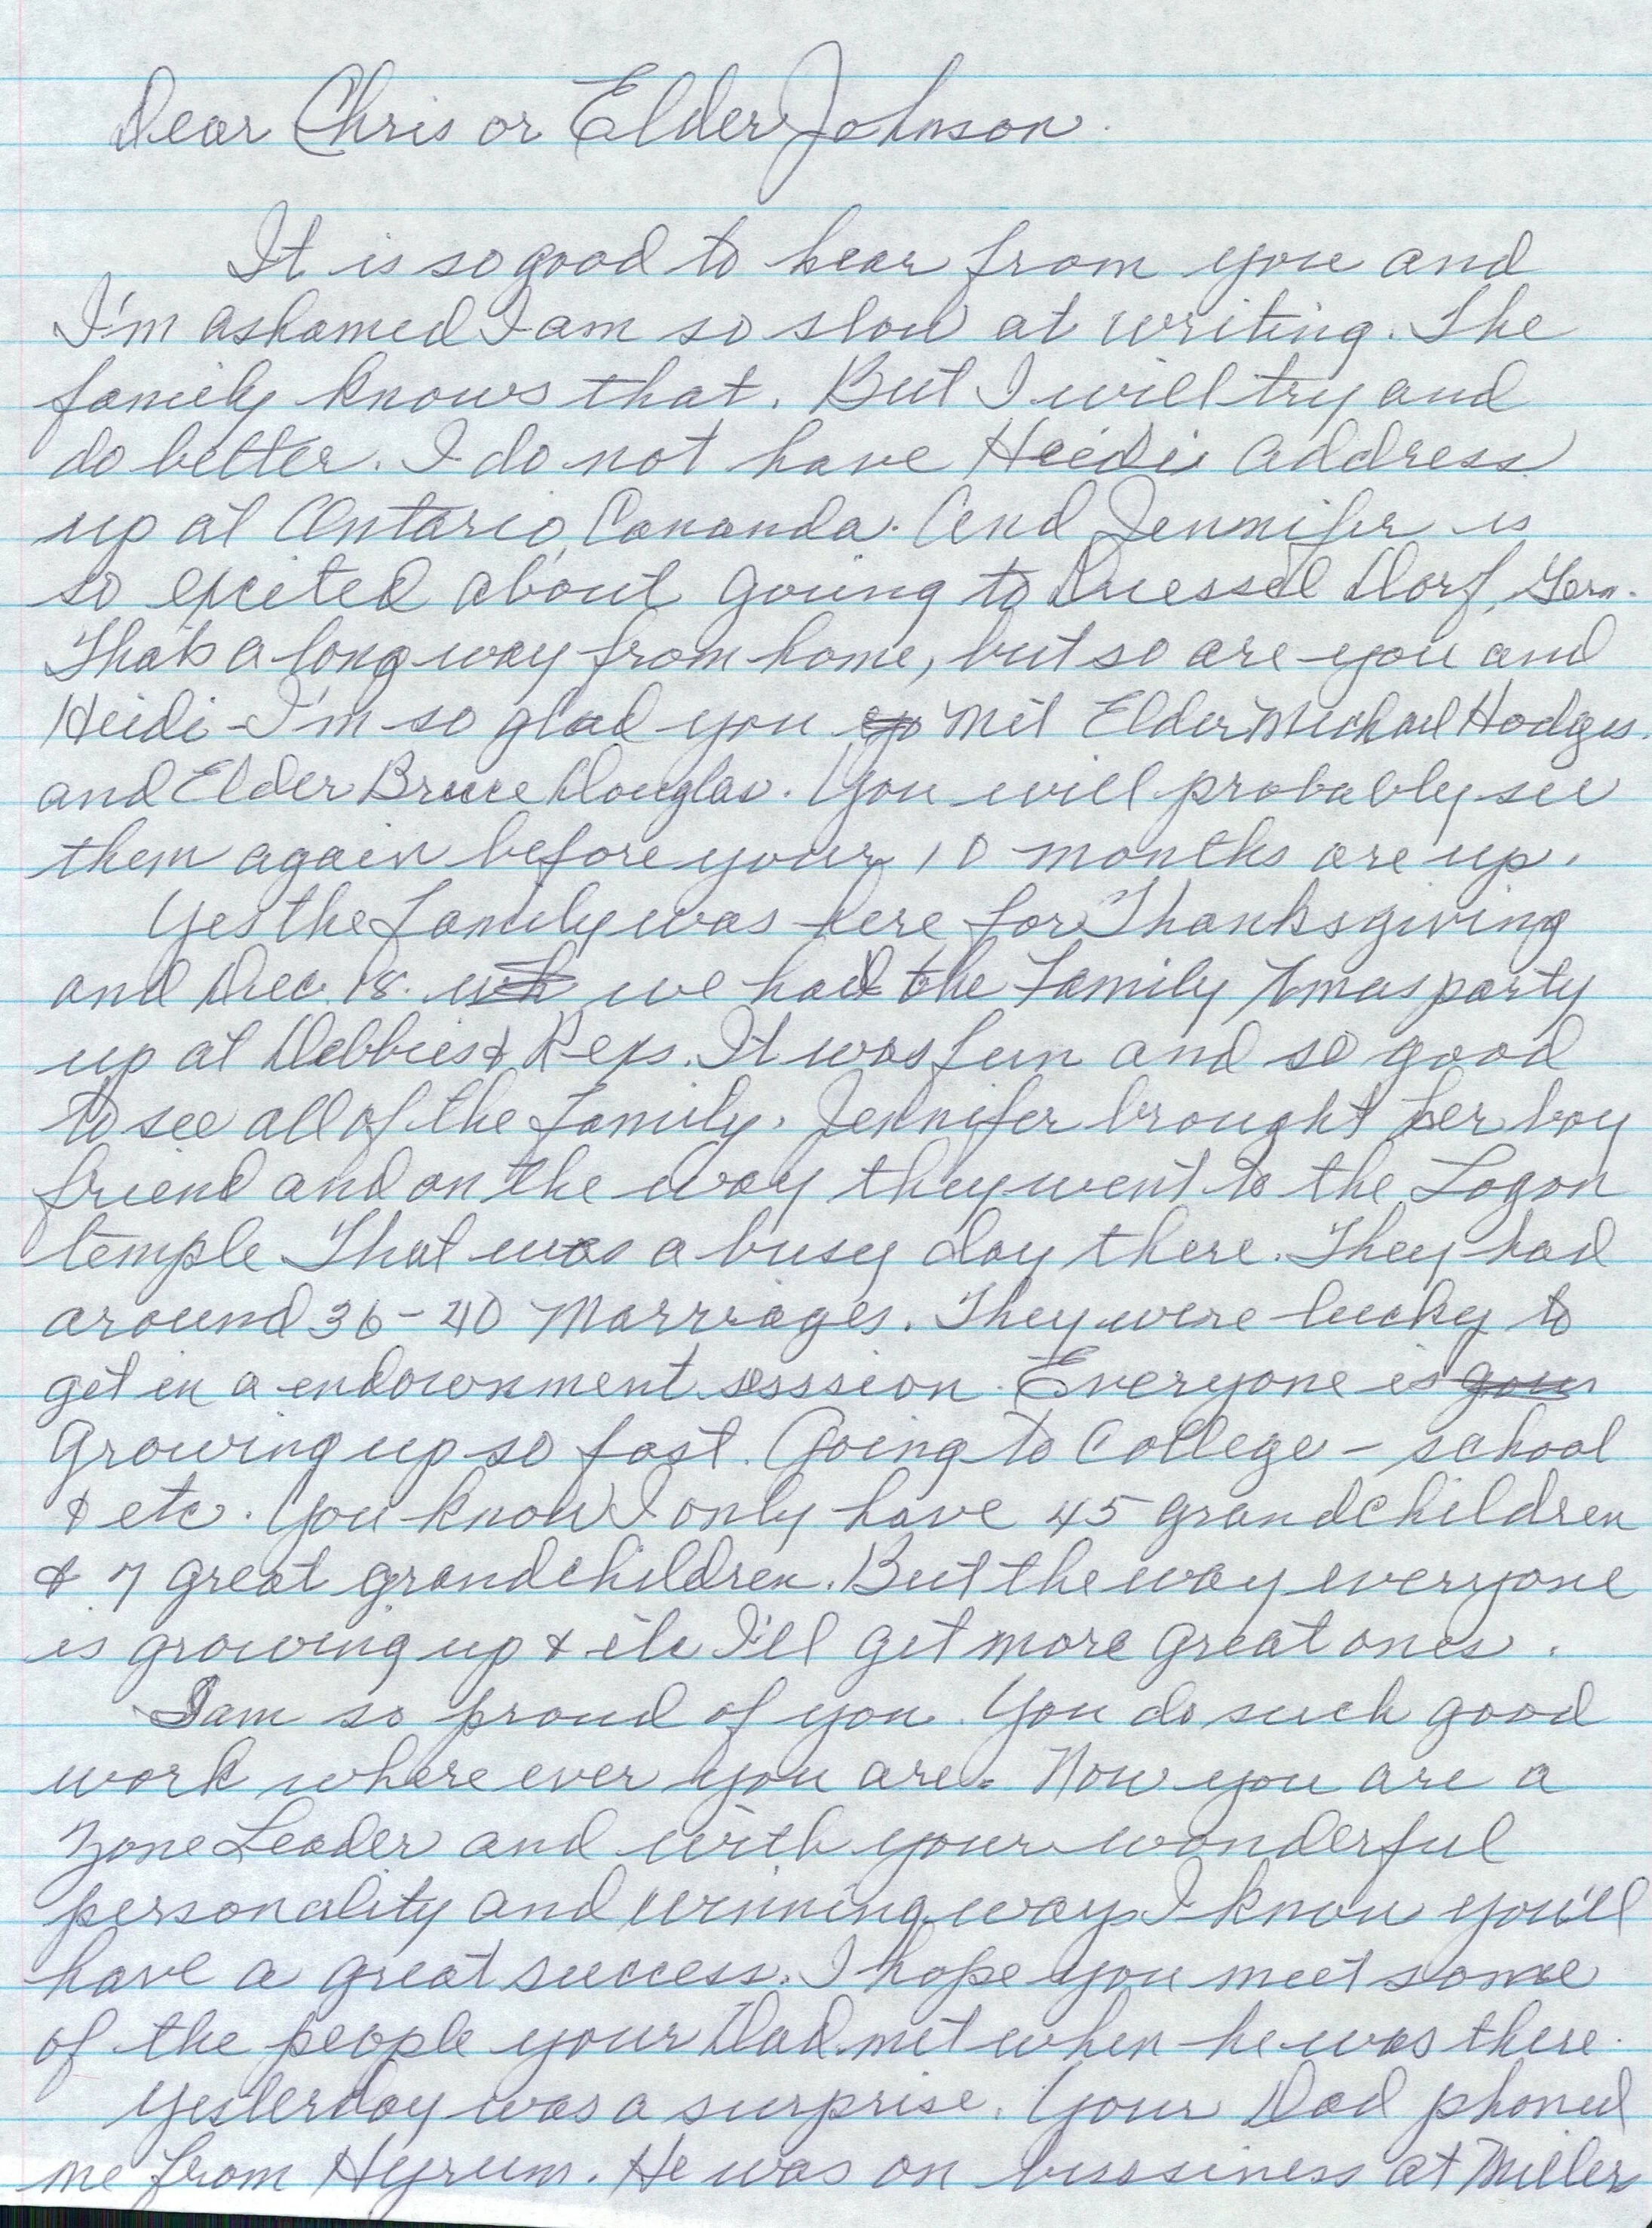 Dear Chris or Elder Johnson.
It is so good to hear from you and
I'm ashamed I am so slow at writing. The
family knows that. But I will try and
do better. I do not have Heidi address
up at Ontario, Cananda. And Jennifer is
so excited about going to Duessel Dorf, Gern.
That's a long way from home, but so are you and
Heidi - I'm so glad you met Elder Michael Hodges.
and Elder Bruce Douglas. You will probably see
them again before your 10 months are up.
Yes the family was here for Thanksgiving
and Dec. 18. we had the Family Xmas party
up at Debbies & Rexs. It was fun and so good
to see all of the family. Jennifer brought her boy
friend and on the way they went to the Logan
temple That was a busy day there. They had
around 36-40 Marriages. They were lucky to
get in a endownment sesssion. Everyone is
Growing up so fast. Going to College - school
& etc. You know I only have 45 grandchildren
& 7 great grandchildren. But the way everyone
is growing up & etc I'll get more great ones.
I am so proud of you. You do such good
work where ever you are. Now you are a
Zone Leader and with your wonderful
personality and winning ways I know you'll
have a great success. I hope you meet some
of the people your Dad met when he was there.
Yesterday was a surprise. Your Dad phoned
me from Hyrum. He was on bussiness at Miller